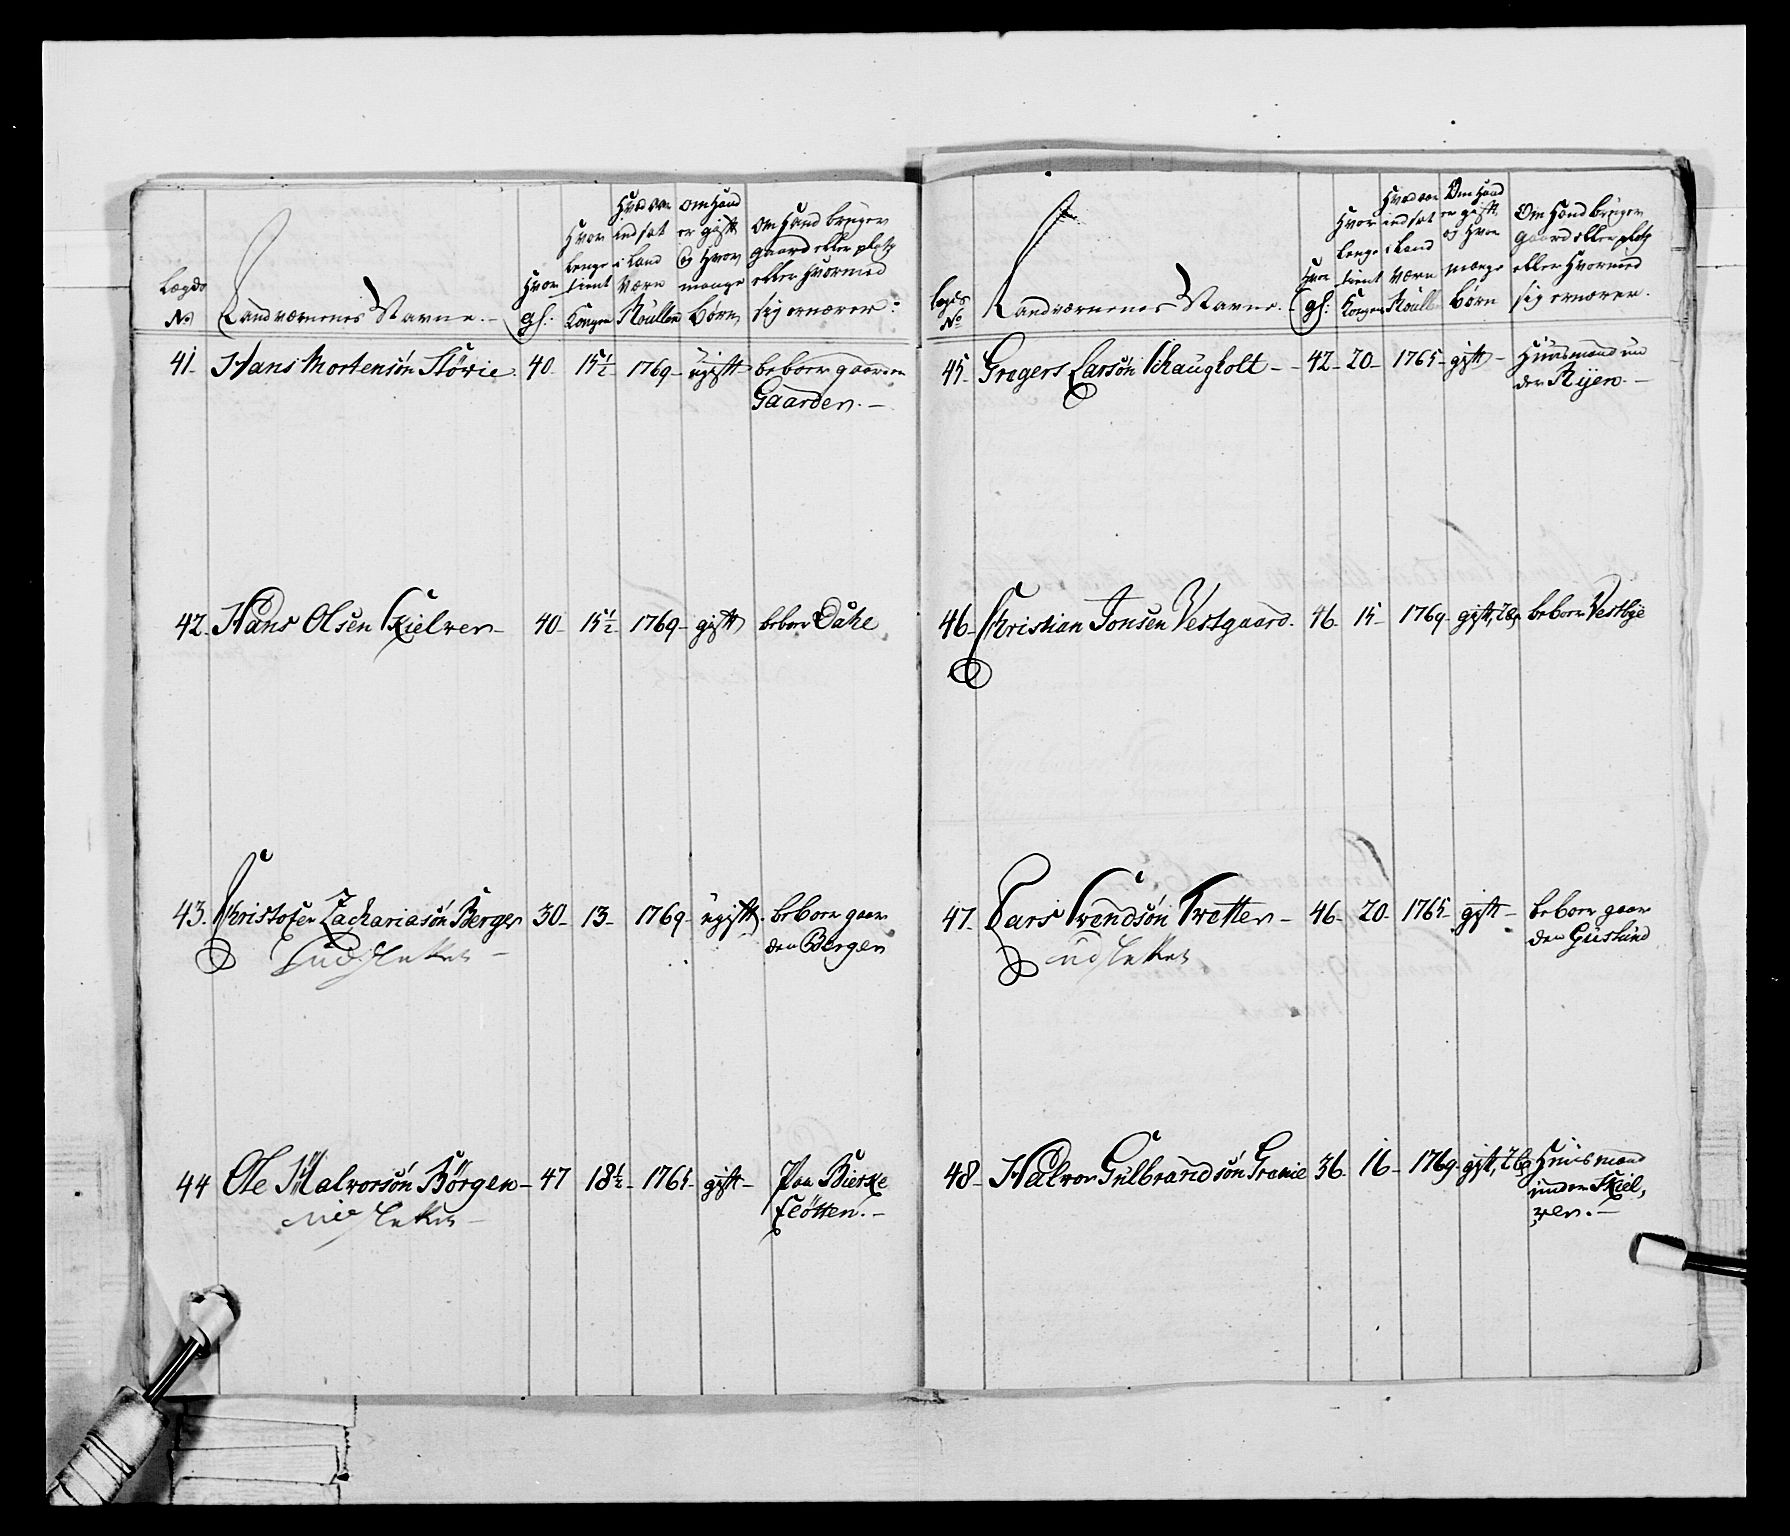 Lægds No
Landværnenes Navne.
Hvor gl:
Hvor lenge tient Kongen
Hvad aar indsat i Land Værn Roullen
Om Hand er gift og Hvor mange børn
Om Hand bruger gaard eller platz eller Hvormed sig ernærer:
41. Hans Mortensøn Størie. 40. 15½ 1769 ugift beboer gaarden
Gaarden.
42. Hans Olsen Skielver 40 15½ 1769 gift beboer Dahl
43. Christofer Zachariasøn Berger 30 13 1769 ugift. beboer gaar
den Bergen
udslettes
44 Ole Halvorsøn Børgen 47 18½ 1765 gift Paa Bierke
fløtten.
udslettes
Lægds No
Landværnenes Navne.
Hvor gl:
Hvor lenge tient Kongen
Hvad aar indsat i Land Værn Roullen
Om Hand er gift og Hvor mange børn
Om Hand bruger gaard eller platz eller Hvormed sig ernærer.
45. Gregers Larsøn Schaugholt 42 20 1765 gift Huusmand un
der Ryen.
46. Christian Jonsen Vestgaard. 46 15 1769 gift, 2 B. beboer Vestbye
47. Lars Svendsøn Tretten 46 20 1765 gift beboer gaar
den Giislund
udslettes
48 Halvor Gulbrandsøn Gramie 36 16 1769 gift, 2 B Huusmand
under Skiel,
ver.